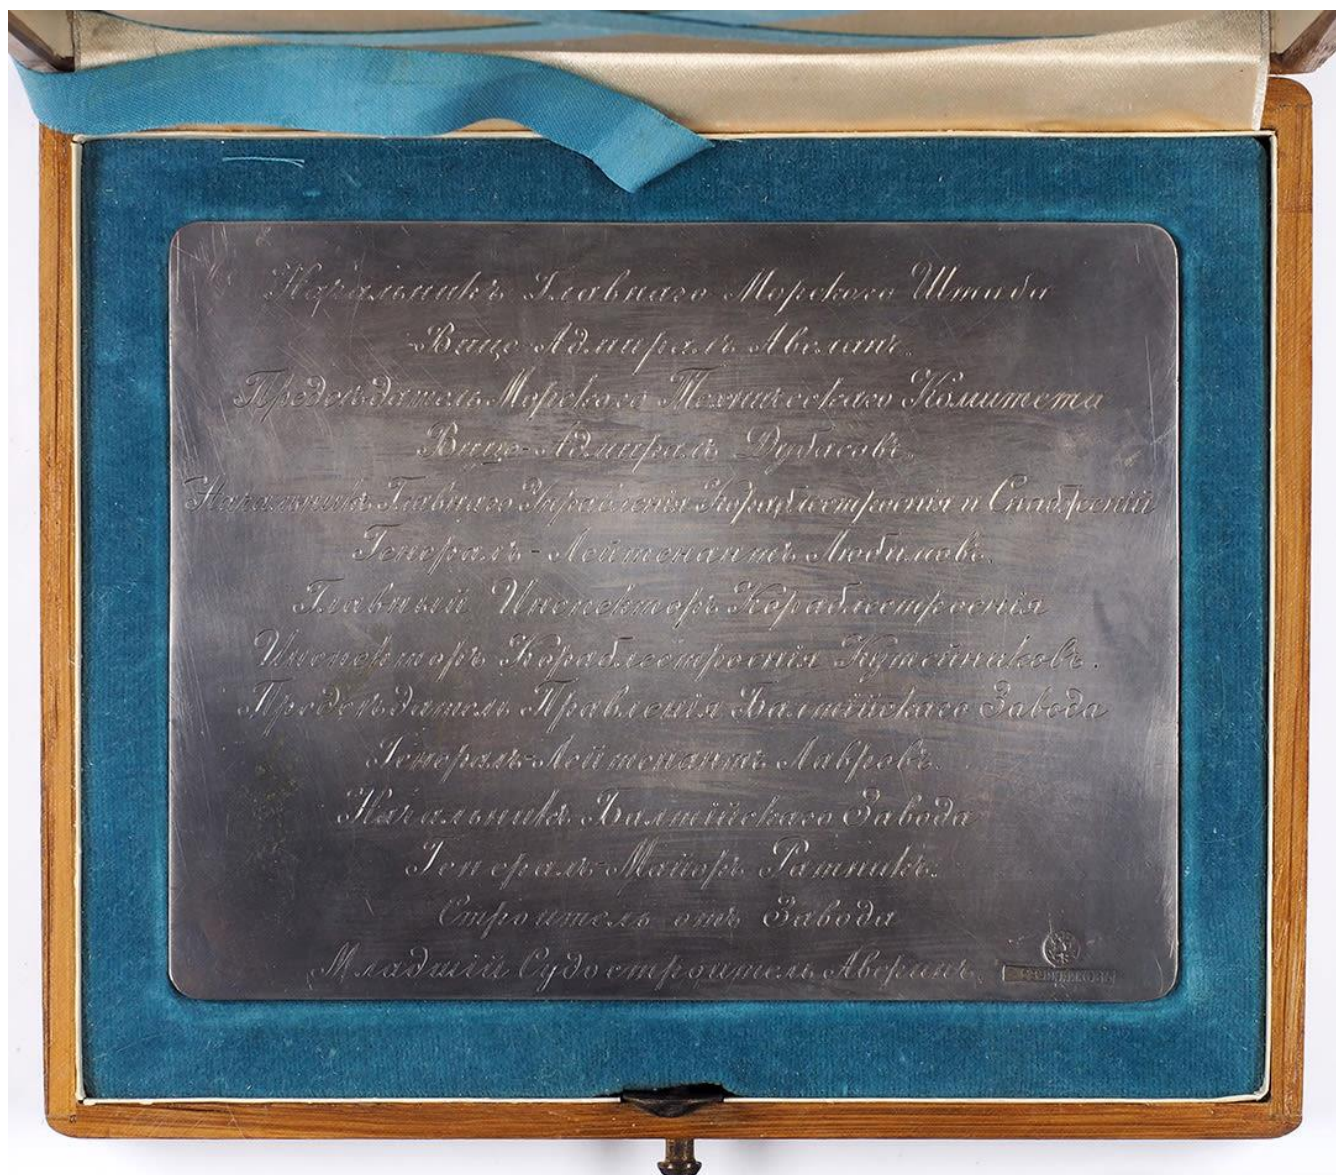 Начальникъ Главнаго Морского Штаба
Вице-Адмиралъ Авеланъ.
Предсѣдатель Морского Техническаго Комитета
Вице-Адмиралъ Дубасовъ.
Начальникъ Главнаго Управленія Кораблестроенія и Снабженій
Генералъ-Лейтенантъ Любимовъ.
Главный Инспекторъ Кораблестроенія
Инспекторъ Кораблестроенія Кутейниковъ.
Предсѣдатель Правленія Балтійскаго Завода
Генералъ-Лейтенантъ Лавровъ.
Начальникъ Балтійскаго Завода
Генералъ-Маіоръ Ратникъ.
Строитель отъ Завода
Младшій Судостроитель Аверинъ.